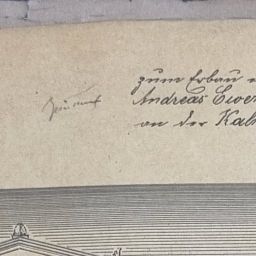 zum Erbau
Andreas Ewer
an der Kal